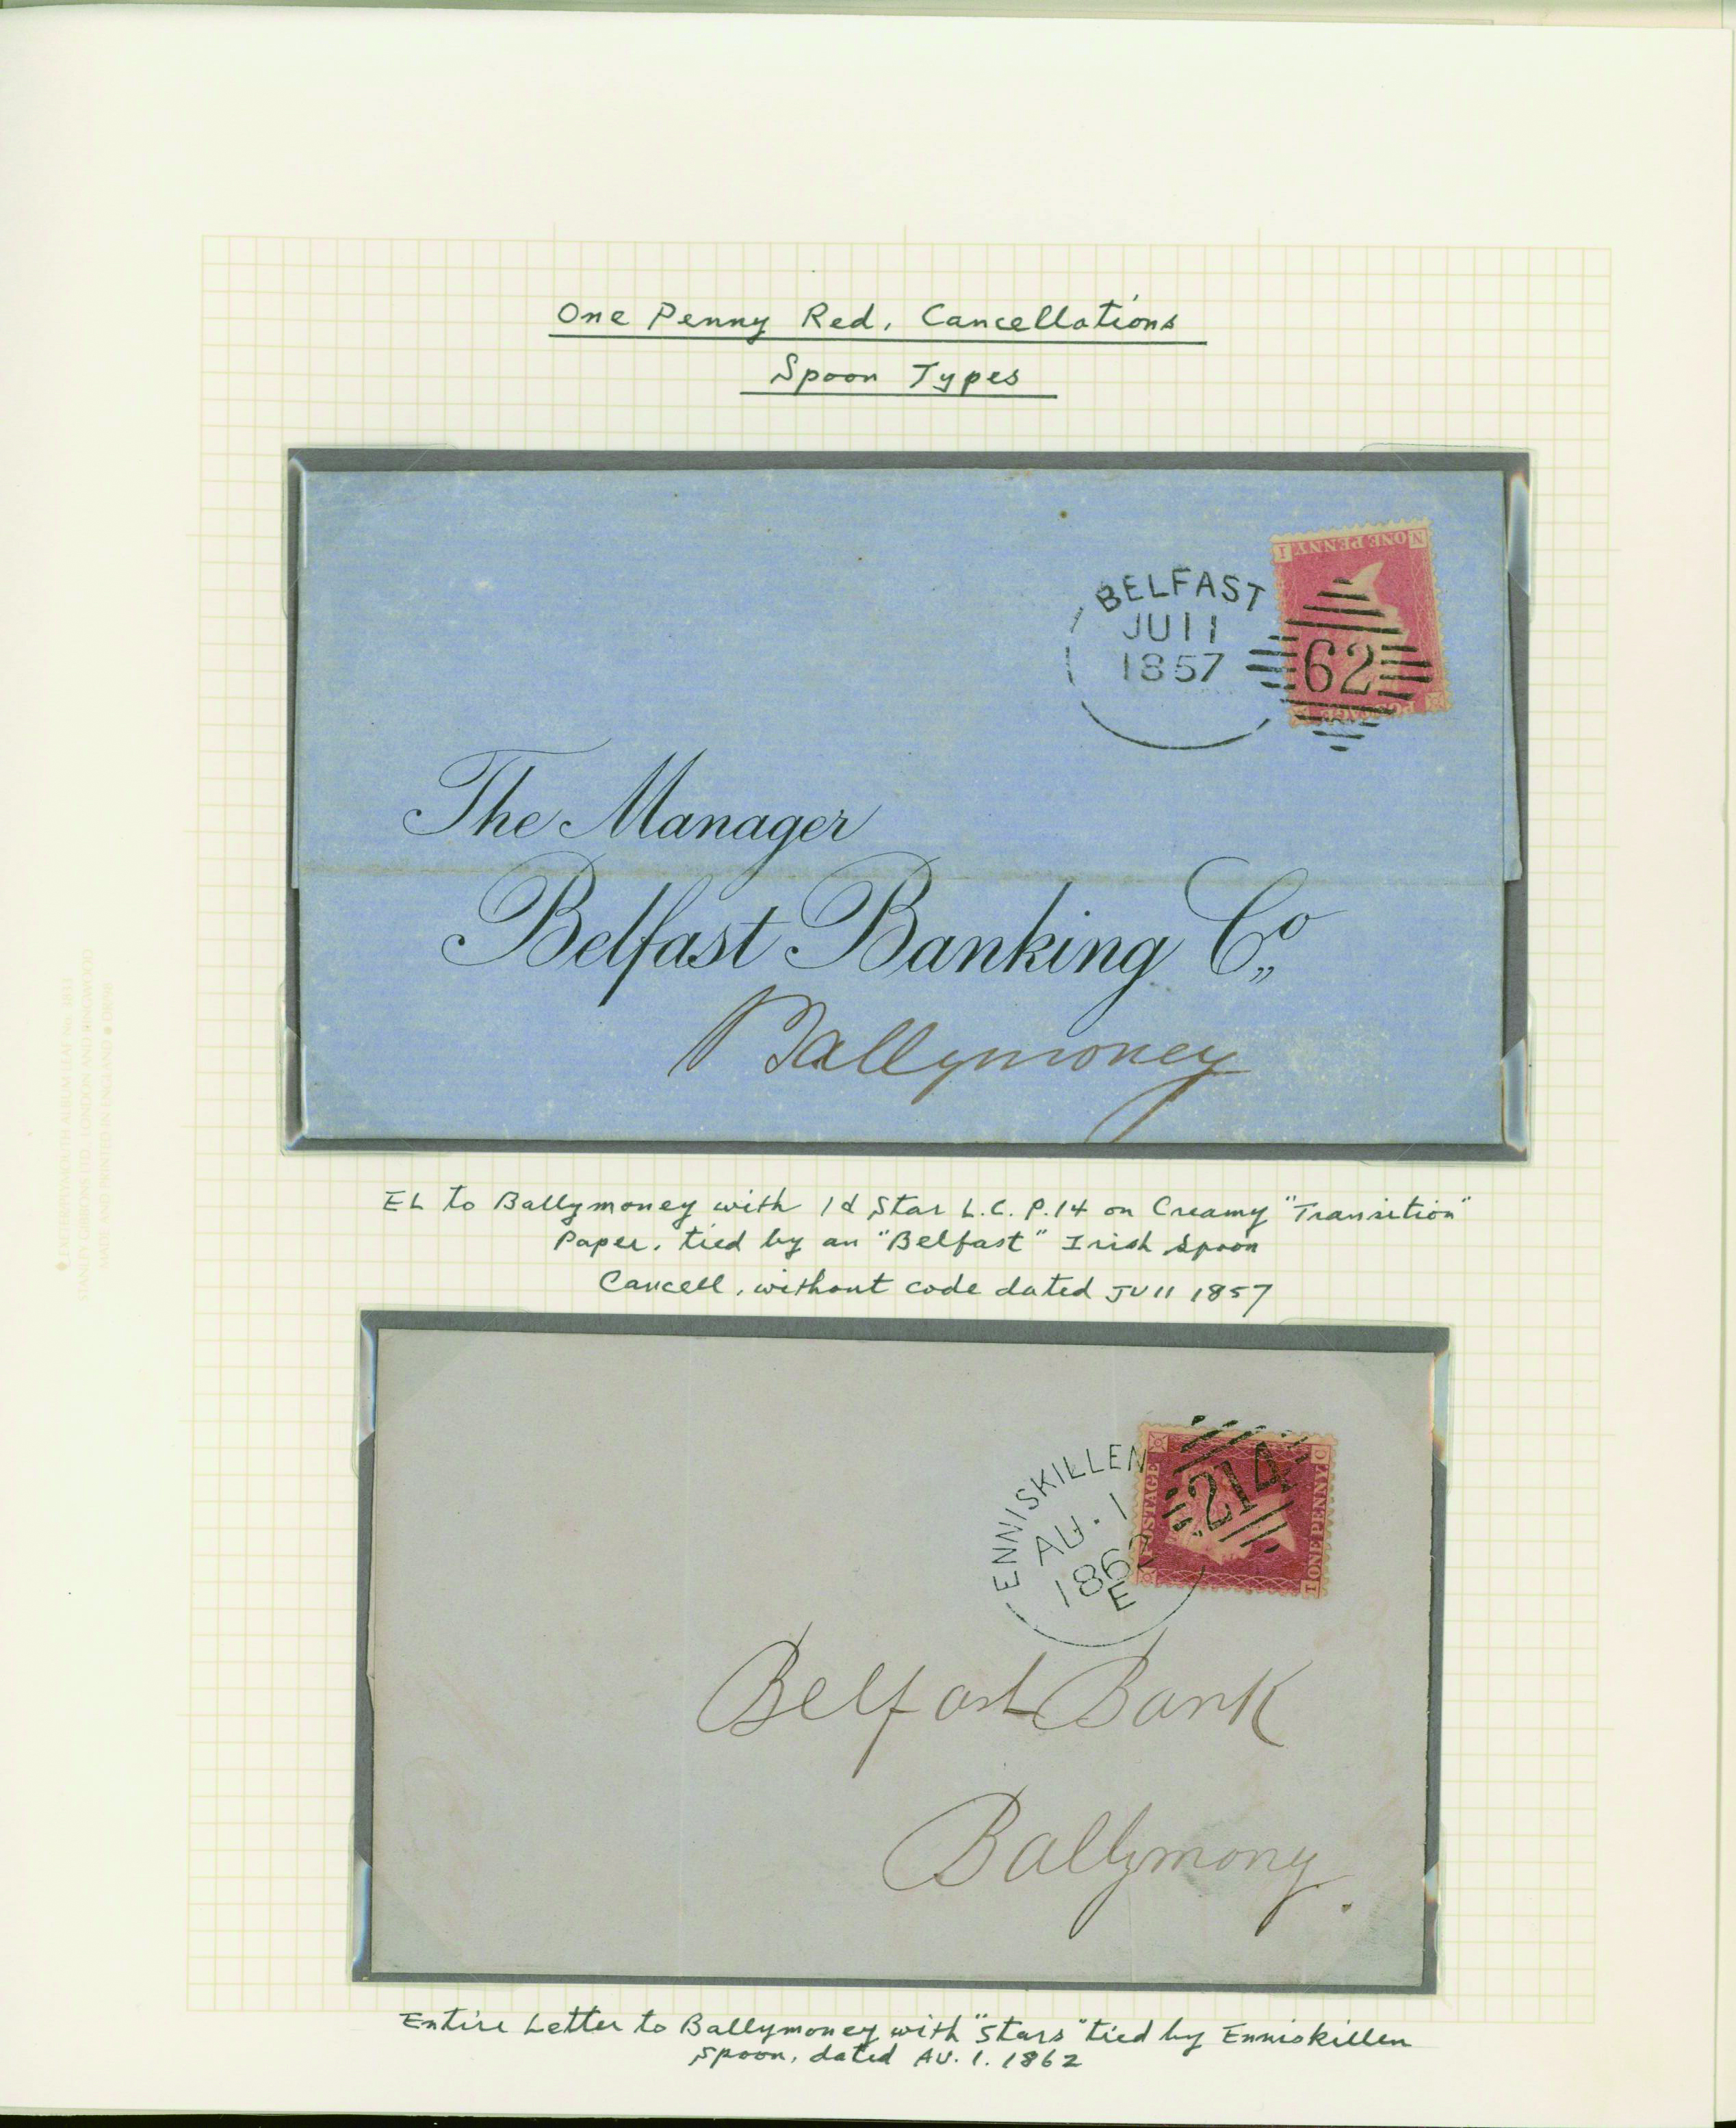 One Penny Red, Cancellations
Spoon Types
I ONE PENNY N
BELFAST
JU 11
1857
62
POSTAGE
The Manager
Belfast Banking Co
Ballymoney
EL to Ballymoney with 1d Star L.C. P.14 on Creamy "Transition"
Paper, tied by an "Belfast" Irish Spoon
Cancell, without code dated JU 11 1857
ENNISKILLEN
AU. 1
1862
E
214
POSTAGE
T ONE PENNY C
Belfast Bank
Ballymony.
Entire Letter to Ballymoney with "Stars" tied by Enniskillen
Spoon, dated AU. 1. 1862